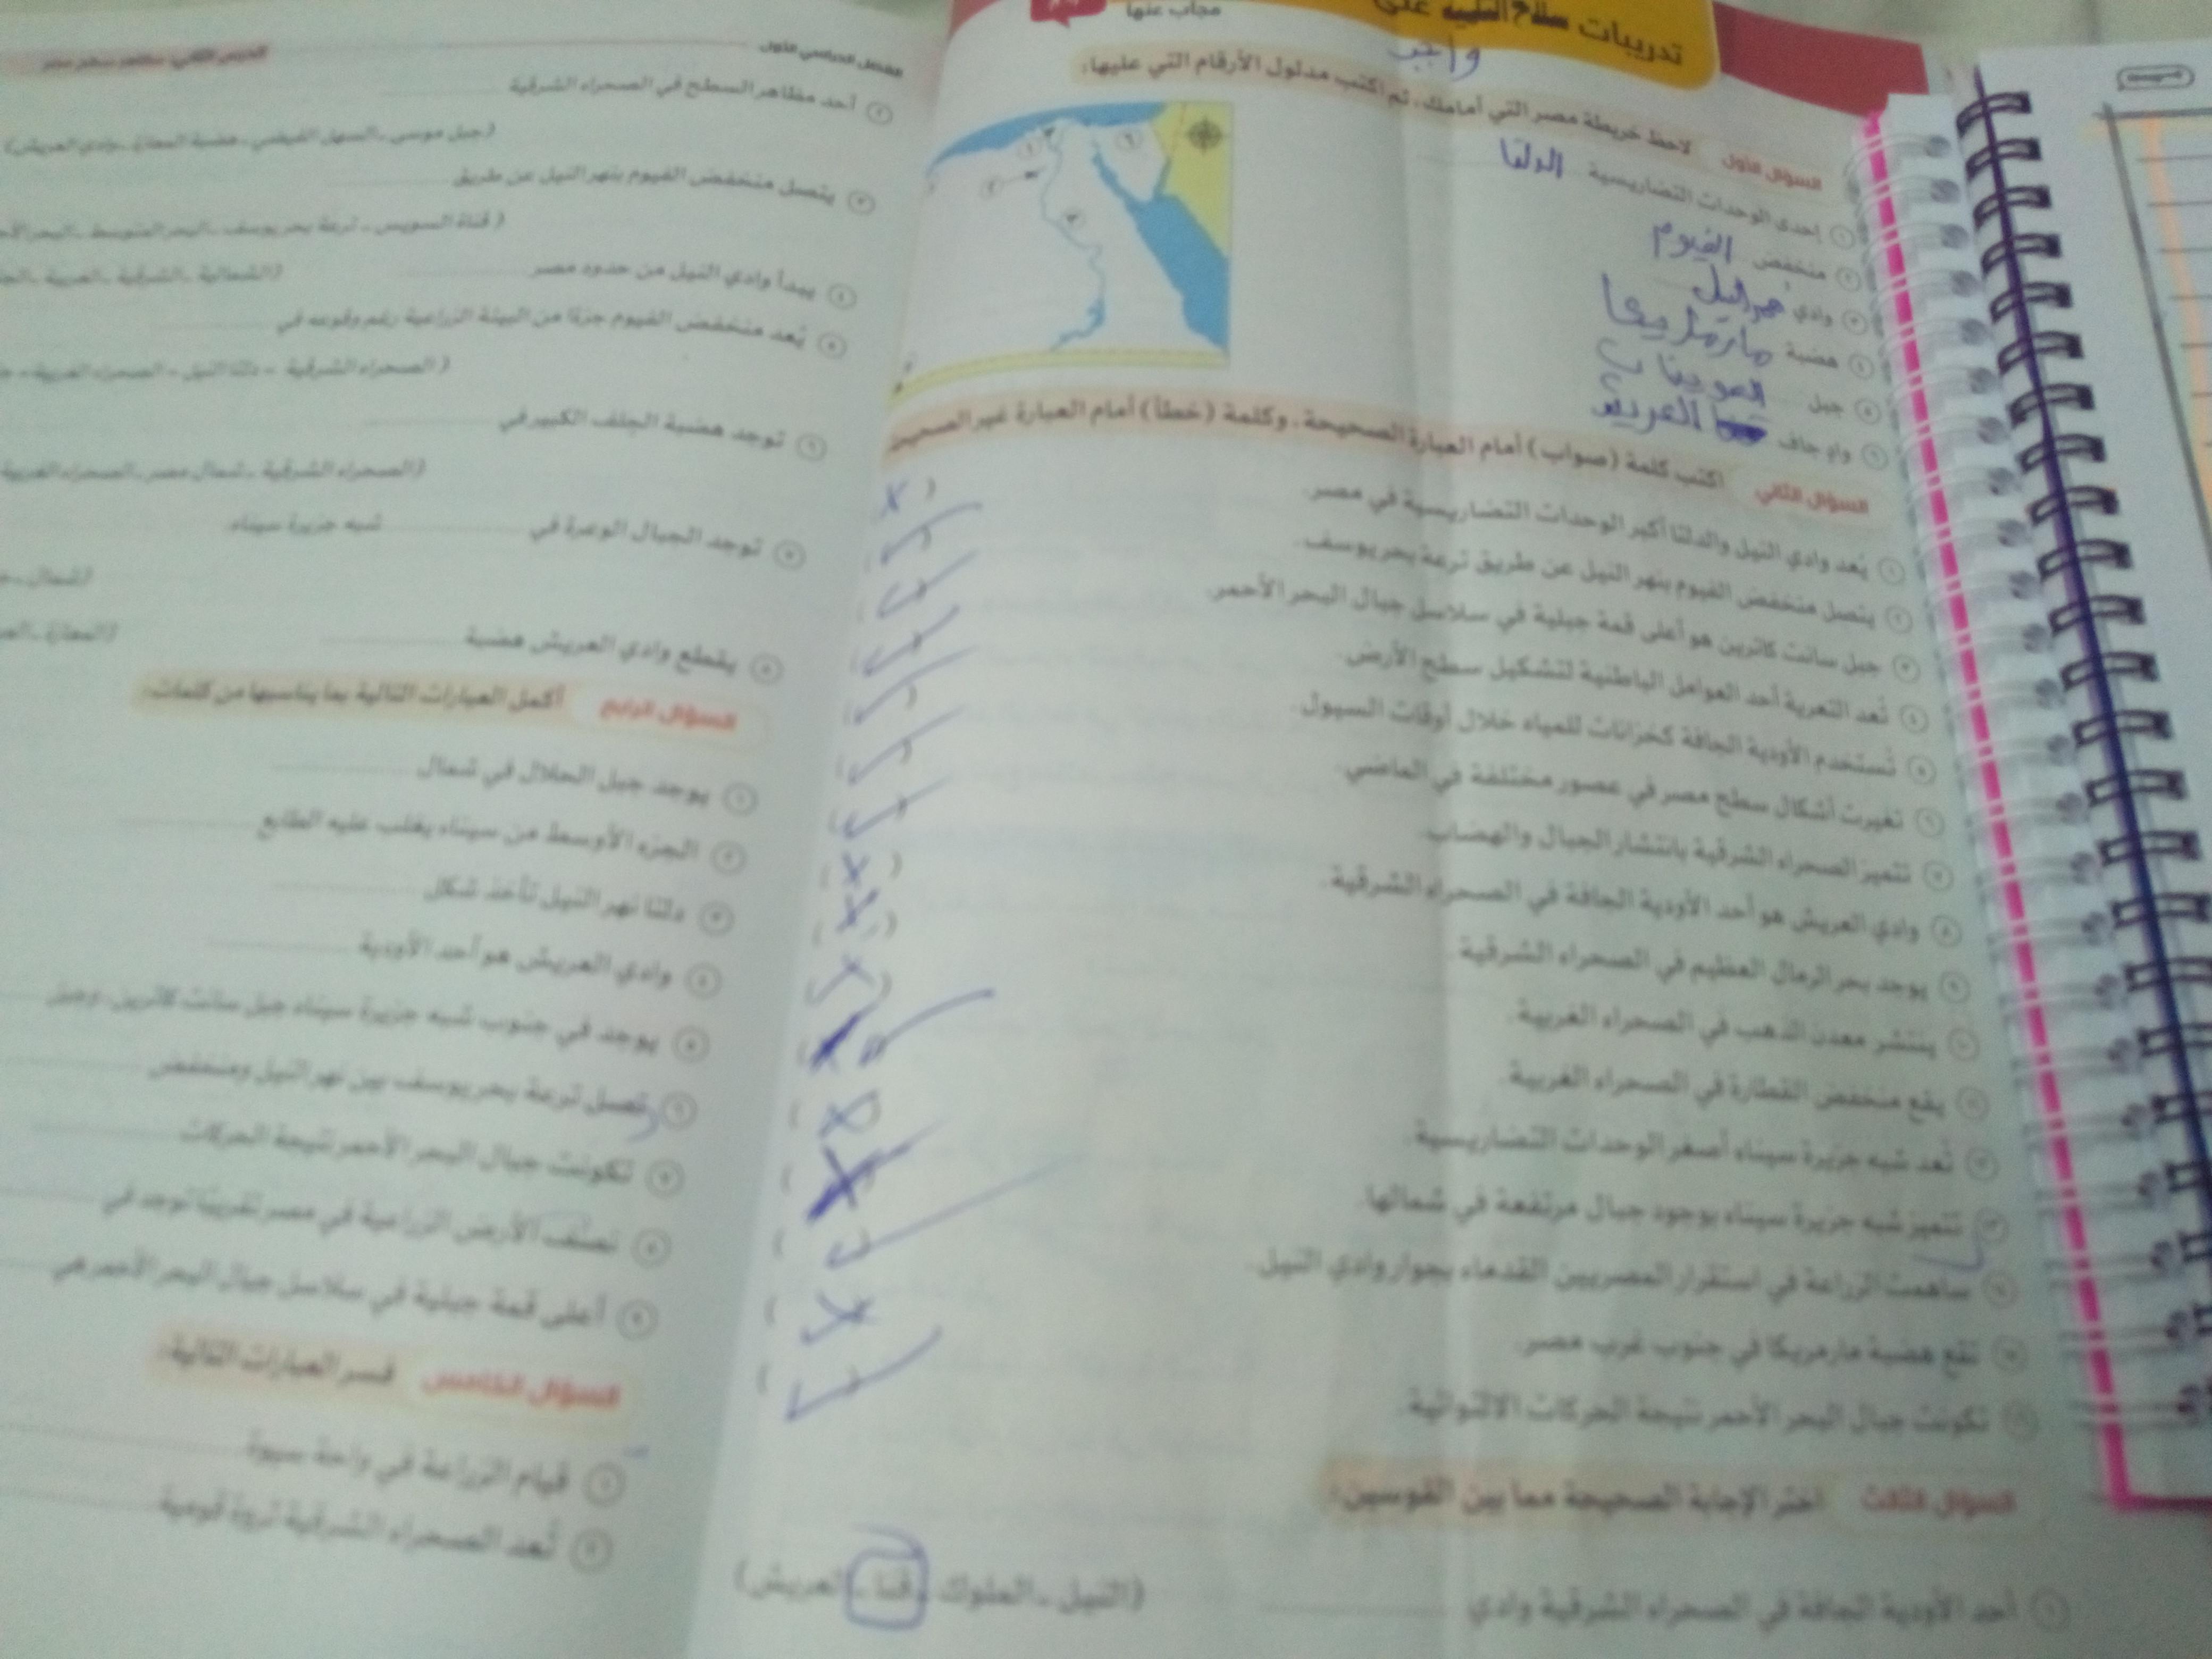 تدريبات سلاح التلميذ على
مجاب عنها
واجب
السؤال الأول لاحظ خريطة مصر التي أمامك، ثم اكتب مدلول الأرقام التي عليها:
١ إحدى الوحدات التضاريسية الدلتا
٢ منخفض الفيوم
٣ وادي النيل
٤ هضبة مارمريكا
٥ جبل العوينات
٦ واد جاف العريش
السؤال الثاني اكتب كلمة (صواب) أمام العبارة الصحيحة، وكلمة (خطأ) أمام العبارة غير الصحيحة:
١ يُعد وادي النيل والدلتا أكبر الوحدات التضاريسية في مصر. ( x
٢ يتصل منخفض الفيوم بنهر النيل عن طريق ترعة بحر يوسف. (✓)
٣ جبل سانت كاترين هو أعلى قمة جبلية في سلاسل جبال البحر الأحمر. (✓)
٤ تُعد التعرية أحد العوامل الباطنية لتشكيل سطح الأرض. (✓)
٥ تُستخدم الأودية الجافة كخزانات للمياه خلال أوقات السيول. (✓)
٦ تغيرت أشكال سطح مصر في عصور مختلفة في الماضي. (✓)
٧ تتميز الصحراء الشرقية بانتشار الجبال والهضاب. (✓)
٨ وادي العريش هو أحد الأودية الجافة في الصحراء الشرقية. (x)
٩ يوجد بحر الرمال العظيم في الصحراء الشرقية. (x)
١٠ ينتشر معدن الذهب في الصحراء الغربية. (x)
١١ يقع منخفض القطارة في الصحراء الغربية. ✓
١٢ تُعد شبه جزيرة سيناء أصغر الوحدات التضاريسية. (x)
١٣ تتميز شبه جزيرة سيناء بوجود جبال مرتفعة في شمالها. (x)
١٤ ساهمت الزراعة في استقرار المصريين القدماء بجوار وادي النيل. (✓)
١٥ تقع هضبة مارمريكا في جنوب غرب مصر. (x)
١٦ تكونت جبال البحر الأحمر نتيجة الحركات الالتوائية. (✓)
السؤال الثالث اختر الإجابة الصحيحة مما بين القوسين:
١ أحد الأودية الجافة في الصحراء الشرقية وادي
(النيل - الملوك - قنا - العريش)
الفصل الدراسي الأول
الدرس الثاني: مظاهر سطح مصر
٢ أحد مظاهر السطح في الصحراء الشرقية
(جبل موسى - السهل الفيضي - هضبة المعازة - وادي العريش)
٣ يتصل منخفض الفيوم بنهر النيل عن طريق
(قناة السويس - ترعة بحر يوسف - البحر المتوسط -
٤ يبدأ وادي النيل من حدود مصر
(الشمالية - الشرقية - الغربية -
٥ يُعد منخفض الفيوم جزءًا من البيئة الزراعية رغم وقوعه في
(الصحراء الشرقية - دلتا النيل - الصحراء الغربية -
٦ توجد هضبة الجلف الكبير في
(الصحراء الشرقية - شمال مصر - الصحراء الغربية
٧ توجد الجبال الوعرة في شبه جزيرة سيناء.
(شمال -
٨ يقطع وادي العريش هضبة
(المعازة -
السؤال الرابع أكمل العبارات التالية بما يناسبها من كلمات:
١ يوجد جبل الحلال في شمال
٢ الجزء الأوسط من سيناء يغلب عليه الطابع
٣ دلتا نهر النيل تأخذ شكل
٤ وادي العريش هو أحد الأودية
٥ يوجد في جنوب شبه جزيرة سيناء جبل سانت كاترين، وجبل
٦ تصل ترعة بحر يوسف بين نهر النيل ومنخفض
٧ تكونت جبال البحر الأحمر نتيجة الحركات
٨ نصف الأرض الزراعية في مصر تقريبًا توجد في
٩ أعلى قمة جبلية في سلاسل جبال البحر الأحمر هي
السؤال الخامس فسر العبارات التالية:
١ قيام الزراعة في واحة سيوة
٢ تُعد الصحراء الشرقية ثروة قومية